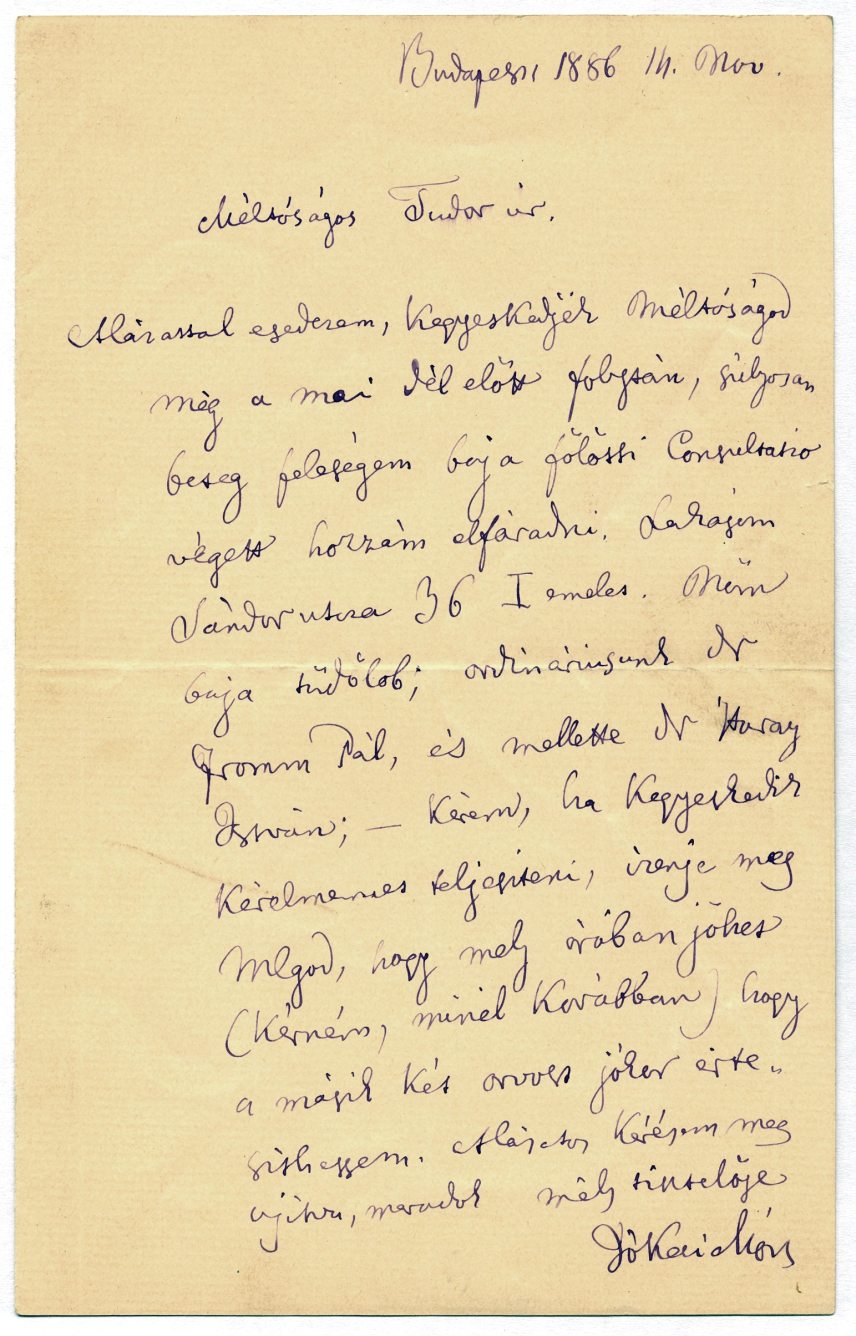 Budapest 1886 14. Nov.
Méltóságos Tudor úr.
Alázattal esedezem, kegyeskedjék Méltóságod
még a mai dél előtt folytán, súlyosan
beteg feleségem baja fölötti Consultatio
végett hozzám elfáradni. Lakásom
Sándor utcza 36 I emelet. Nőm
baja tüdőlob; ordináriusunk dr
Fromm Pál, és mellette dr Huray
István; — Kérem, ha kegyeskedik
kérelmemet teljesíteni, izenje meg
Mlgod, hogy mely órában jöhet
(kérném, minél korábban) hogy
a másik két orvost jókor érte„
sithessem. Alázatos kérésem meg
ujitva, maradok mély tisztelője
Jókai Mór